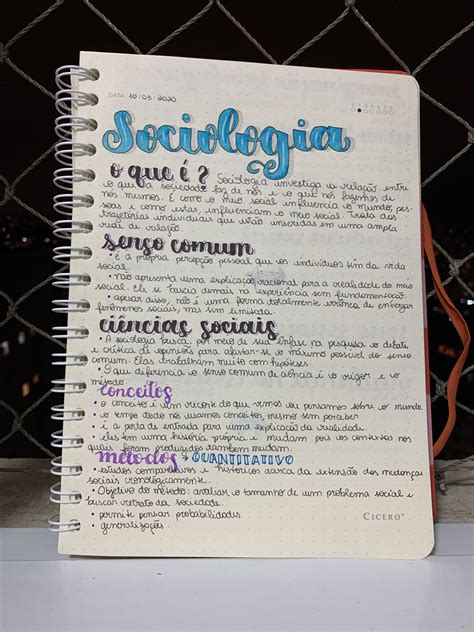 DATA 10/05/2020
Sociologia
o que é?
Sociologia investiga a relação entre
o que a sociedade faz de nós e o que nós fazemos de
nós mesmos. É como o meio social influencia o mundo, pes-
soas e como estas influenciam o meio social. Trata das
trajetórias individuais que estão inseridas em uma ampla
rede de relação
senso comum
• é a própria percepção pessoal que os indivíduos tem da vida
social.
• não apresenta uma explicação racional para a realidade do meio
social. Ele se baseia demais na experiência sem fundamentação.
• apesar disso, não é uma forma totalmente errônea de enxergar
fenômenos sociais, mas sim limitada.
ciências sociais
• A sociologia busca, por meio de sua ênfase na pesquisa o debate
e crítica de opiniões para afastar-se o máximo possível do senso
comum. Elas trabalham muito com hipóteses.
• O que diferencia o senso comum de ciência é o rigor e o
método.
conceitos
• o conceito é um recorte do que vemos ou pensamos sobre o mundo.
• o tempo todo nós usamos conceitos, mesmo sem perceber
• é a porta de entrada para uma explicação da realidade.
• eles tem uma história própria e mudam pois os contextos nos
quais foram produzidos também mudam.
métodos → QUANTITATIVO
• estudos comparativos e históricos acerca da extensão das mudanças
sociais cronologicamente.
• Objetivo do método: analisar o tamanho de um problema social e
buscar retrato da sociedade.
• permite pensar probabilidades
• generalizações
CICERO